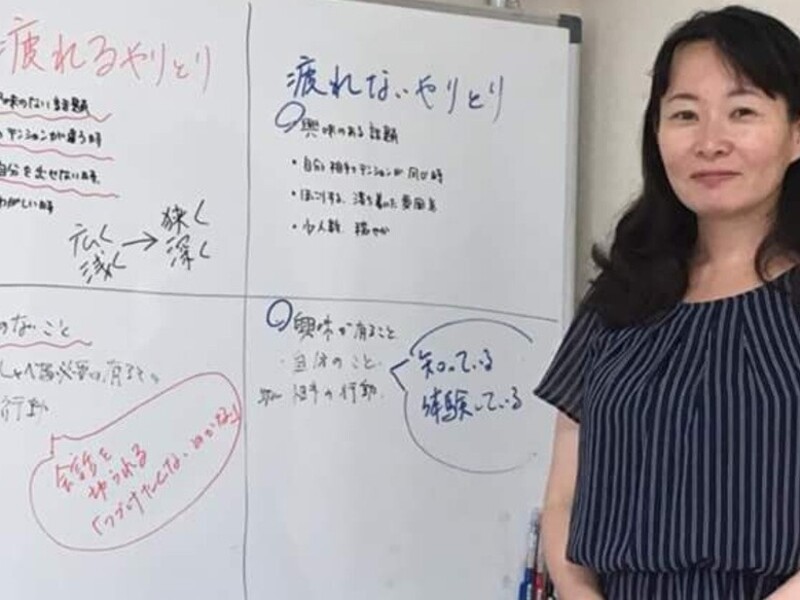 疲れるやりとり
味のない話題
テンションが違う時
自分を出せない時
広く
浅く
→
狭く
深く
疲れないやりとり
○興味のある話題
・自分と相手のテンションが同じ時
・ほっこりする、落ち着いた雰囲気
・少人数、穏やか
のないこと
行動
会話を
切られる
○興味が有ること
・自体のこと
相手の行動
知っている
体験している